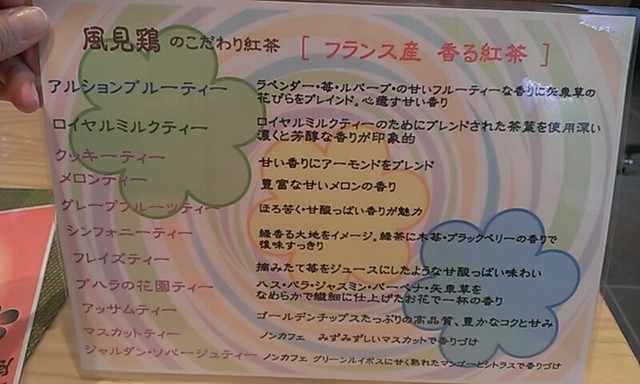 風見鶏 のこだわり紅茶 [ フランス産 香る紅茶 ]
アルションブルーティー ラベンダー・苺・ルバーブ・の甘いフルーティーな香りに矢車草の
花びらをブレインド。心癒す甘い香り
ロイヤルミルクティー ロイヤルミルクティーのためにブレンドされた茶葉を使用深い
濃くと芳醇な香りが印象的
クッキーティー 甘い香りにアーモンドをブレンド
メロンティー 豊富な甘いメロンの香り
グレープフルーツティー ほろ苦く・甘酸っぱい香りが魅力
シンフォニーティー 緑香る大地をイメージ。緑茶に木苺・ブラックベリーの香りで
後味すっきり
フレイズティー 摘みたて苺をジュースにしたような甘酸っぱい味わい
ブハラの花園ティー ハス・バラ・ジャスミン・バーベナ・矢車草を
なめらかで繊細に仕上げたお花で一杯の香り
アッサムティー ゴールデンチップスたっぷりの高品質、豊かなコクと甘み
マスカットティー ノンカフェ みずみずしいマスカットで香りづけ
ジャルダン・ソバージュティー ノンカフェ グリーンルイボスに甘く熟れたマンゴーとシトラスで香りづけ